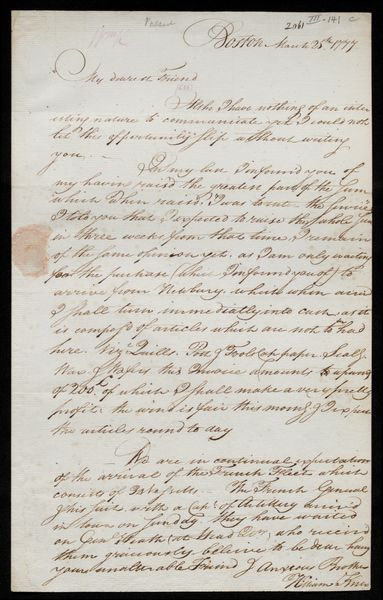 2061 III-141 C
Boston March 25th 1777
My dearest Friend
Altho I have nothing of an inter
esting nature to communicate yet I could not
let this opportunity slip without writing
you.
In my last I inform'd you of
my having rais'd the greatest part of the Sum
which when raised I was to
I told you that I expected to raise the whole Sum
in three weeks from that time, I remain
of the same opinion yet. as I am only waiting
for the purchase (which I inform'd you of) to
arrive from Newbury. which when arriv'd
I shall turn immediately into cash, as it
is compos'd of articles which are not to be had
here. Viz. Quills. Pott & Foolscap paper. Sealg
Wax & Wafers this Invoice amounts to upwards
of 200£ of which I shall make a very pretty
profit: the wind is fair this morng & I expect
the articles round to day
We are in continual expectation
of the arrival of the French Fleet which
consists of Vessells The French General
& his suit with a Capt of Artillery arriv'd
in town on Sunday. they have waited
on Genl Heath (at Head Qrs) who receiv'd
them graciously believe to be dear Harry
your unalterable Friend & Anxious Brother
William Knox